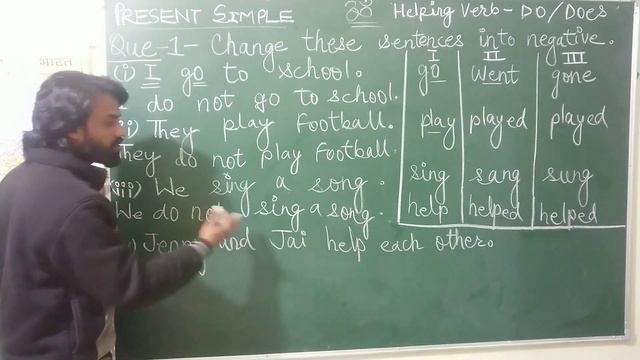 PRESENT SIMPLE ॐ Helping Verb - DO/Does
Que-1- Change these sentences into negative.
(i) I go to school.
do not go to school.
) They play Football.
They do not play Football.
iii) We sing a song.
We do not sing a song.
) Jenny and Jai help each other.
I II III
go went gone
play played played
sing sang sung
help helped helped
भारत